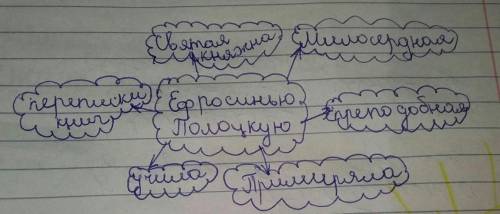 Святая
княжна
Милосердная
переписки
книг
Ефросинью
Полоцкую
преподобная
учила
Примиряла